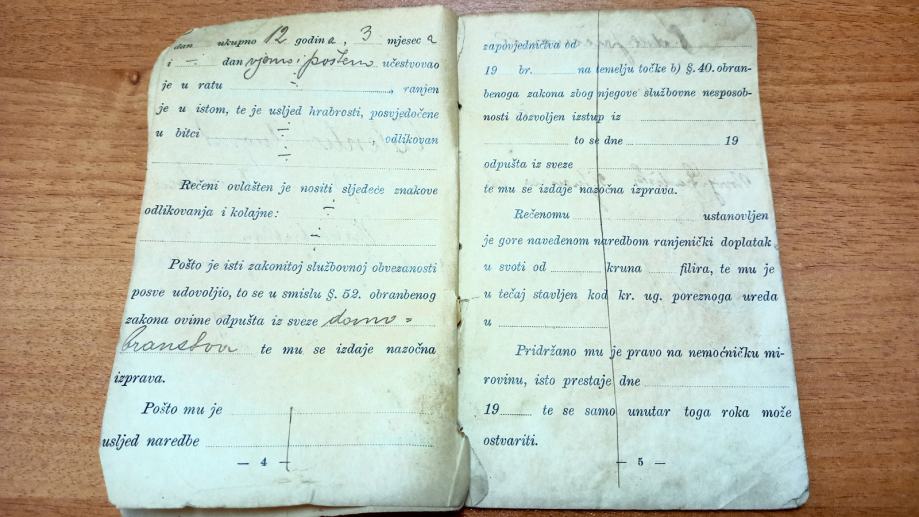 dan ukupno 12 godina, 3 mjeseca
i — dan vjerno i pošteno učestvovao
je u ratu ÷, ranjen
je u istom, te je usljed hrabrosti, posvjedočene
u bitci ÷ odlikovan
÷
Rečeni ovlašten je nositi sljedeće znakove
odlikovanja i kolajne: ÷
÷
Pošto je isti zakonitoj službovnoj obvezanosti
posve udovoljio, to se u smislu §. 52. obranbenog
zakona ovime odpušta iz sveze domo-
branstva te mu se izdaje nazočna
izprava.
Pošto mu je
usljed naredbe
— 4 —
zapovjedničtva od
19 br. na temelju točke b) §. 40. obran-
benoga zakona zbog njegove službovne nesposob-
nosti dozvoljen izstup iz
to se dne 19
odpušta iz sveze
te mu se izdaje nazočna izprava.
Rečenomu ustanovljen
je gore navedenom naredbom ranjenički doplatak
u svoti od kruna filira, te mu je
u tečaj stavljen kod kr. ug. poreznoga ureda
u
Pridržano mu je pravo na nemoćničku mi-
rovinu, isto prestaje dne
19 te se samo unutar toga roka može
ostvariti.
— 5 —